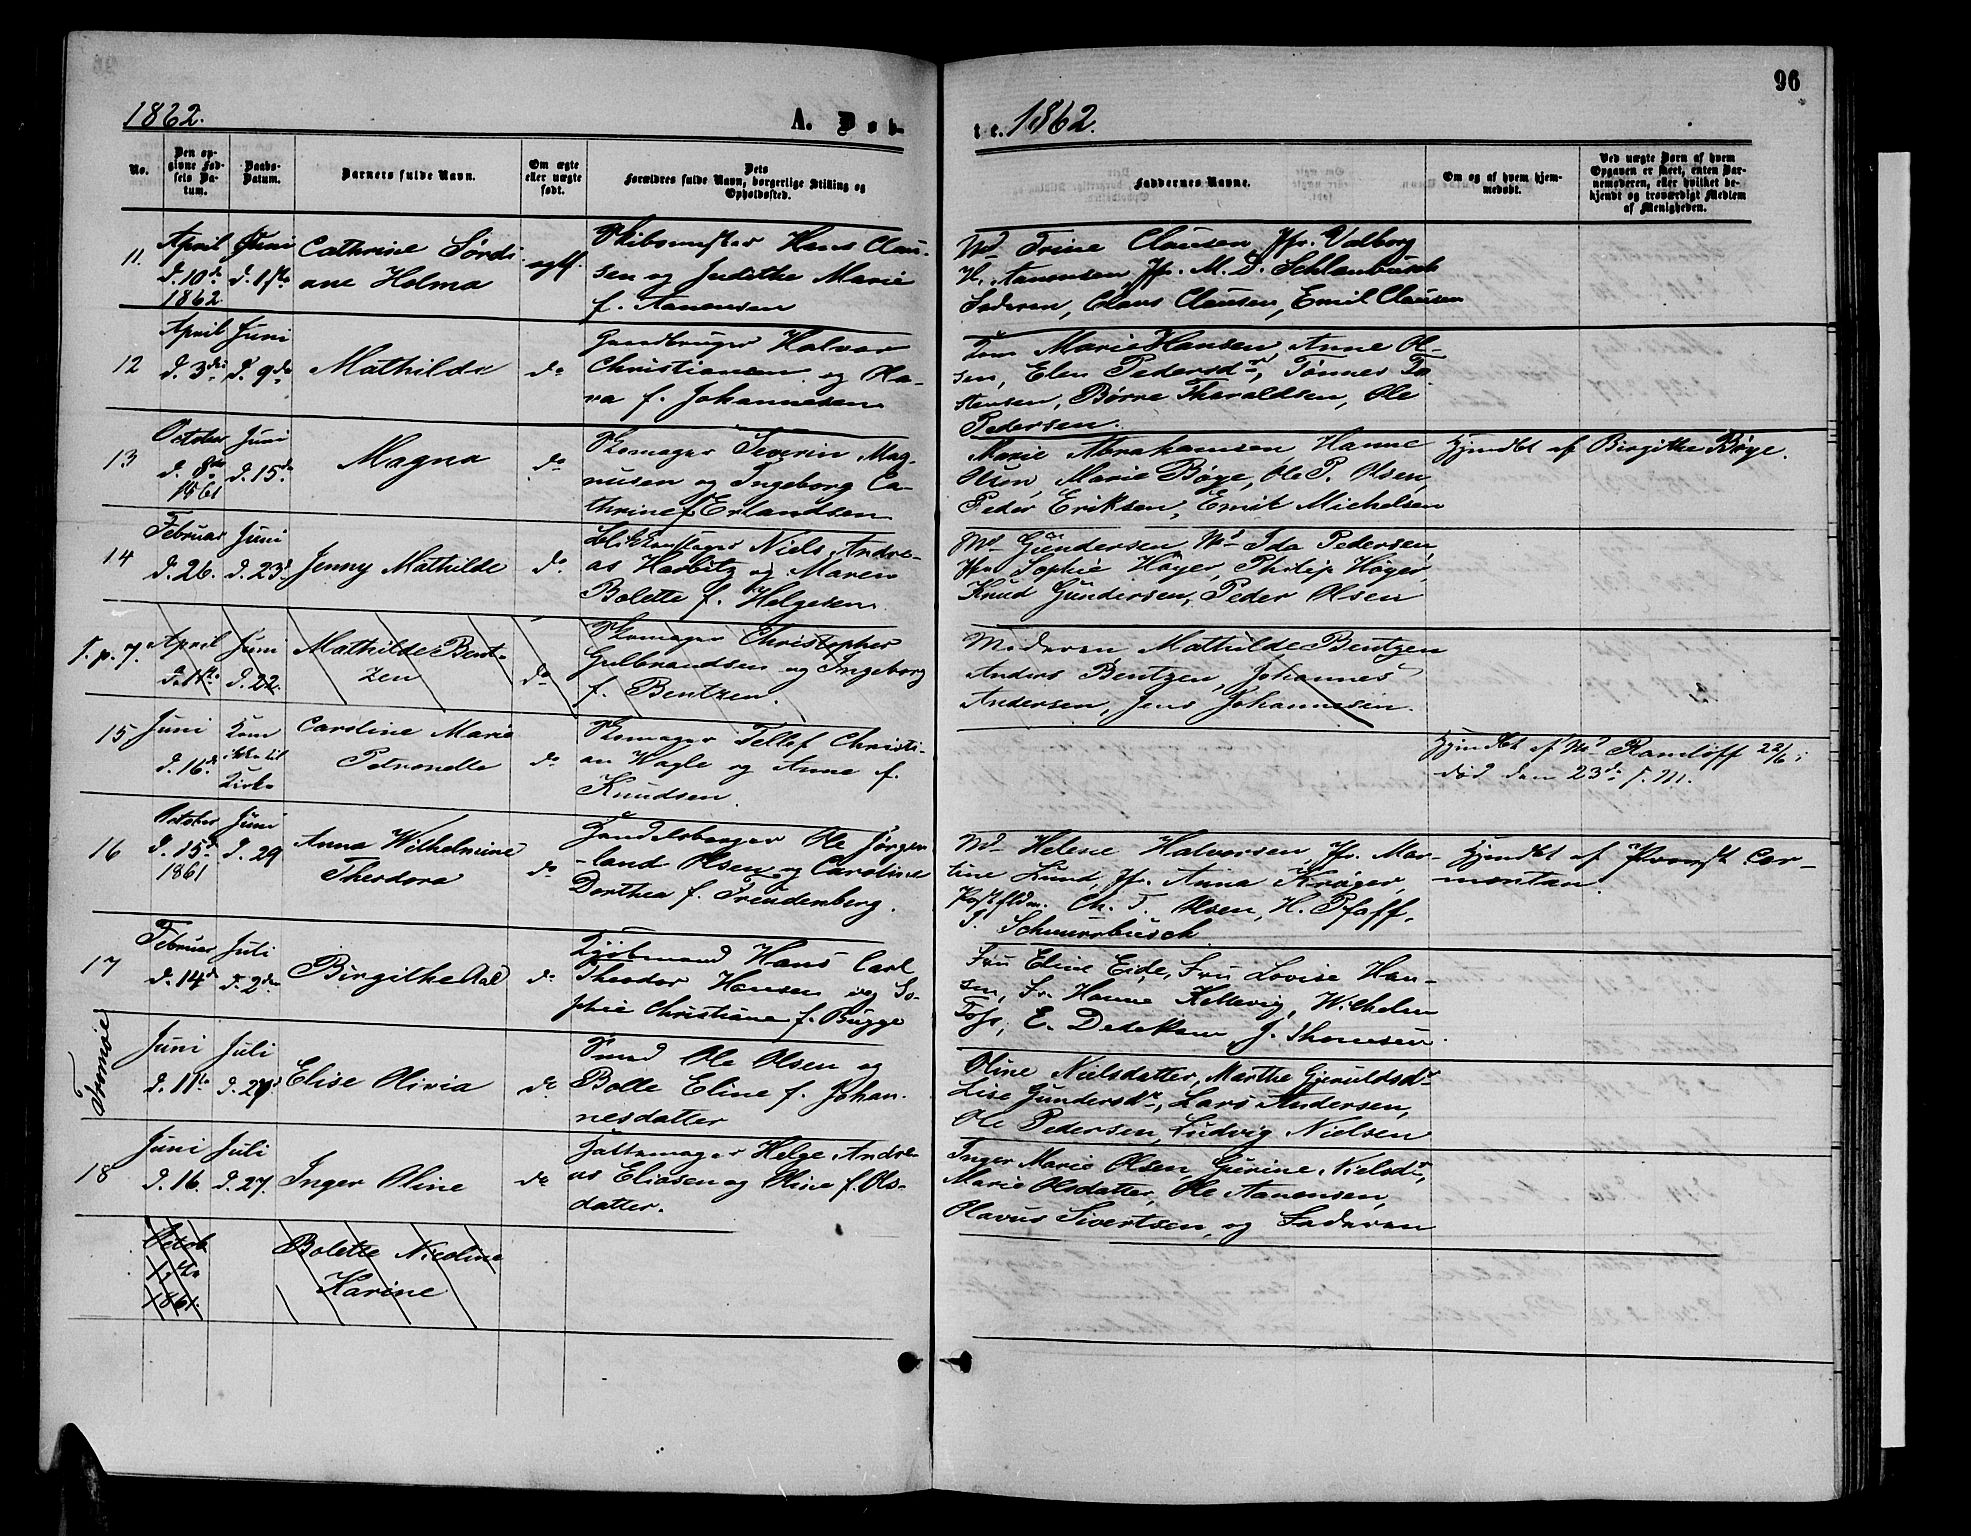 96
1862.
A. Døb-
te. 1862.
No.
Den op-
givne Fød-
sels Da-
tum.
Daabs-
Datum.
Barnets fulde Navn.
Om ægte
eller uægte
født.
Dets
Forældres fulde Navn, borgerlige Stilling og
Opholdssted.
Faddernes Navne.
Om og af hvem hjem-
medøbt.
Ved uægte Børn af hvem
Opgaven er skeet, enten Bar-
nemoderen, eller hvilket be-
kjendt og troværdigt Medlem
af Menigheden.
11.
April
d. 10de
1862
Juni
Cathrine Tørdi
ane Helma
ægtf.
Skibsmester Hans Clau-
sen og Judithe Marie
f. Aanensen
Md Trine Clausen, Jfr. Valborg
H. Aanensen, Jfr. M. D. Schlanbusch
Faderen, Claus Clausen, Emil Clausen
12
April
d. 3die
Juni
d. 9de
Mathilde
do
Gaardbruger Halvor
Christiansen og Ola-
va f. Johannesen
Marie Hansen, Anne Ol-
sen, Elen Pedersdr, Tønnes To
stensen, Børre Tharaldsen, Ole
Pedersen.
13
October
d. 8de
1861
Juni
d. 15de
Magna
do
Skomager Severin Mag-
nusen og Ingeborg Ca-
thrine f. Erlandsen
Marie Abrahamsen, Hanne
Olsen, Marie Bøge, Ole P. Olsen,
Peder Eriksen, Emil Michelsen
Hjemdbt af Birgithe Bøge.
14
Februar
d. 26.
Juni
d. 23d
Jenny Mathilde
do
Niels Andre-
as Harbitz og Maren
Bolette f. Helgesen
Md Gundersen, Md Ida Pedersen,
Jfr Sophie Høyer, Philip Høyer,
Knud Gundersen, Peder Olsen
S. p. 7.
April
Juni
d. 22.
Mathilde Bent-
zen
do
Skomager Christopher
Gulbrandsen og Ingeborg
f. Bentzen.
Moderen Mathilde Bentzen
Anders Bentzen, Johannes
Andersen, Jens Johannesen.
15
Juni
d. 16de
Kom
ikke til
Kirke
Caroline Marie
Petronelle
do
Skomager Tellef Christi-
an Vagle og Anne f.
Knudsen.
Hjemdbt af Md Ramløff 22/6;
død den 23de s. M.
16
October
d. 15d
1861
Juni
d. 29
Anna Wilhelmine
Theodora
do
Handelsborger Ole Jørgen
land Olsen og Caroline
Dorthea f. Freudenberg.
Md Helene Halvorsen, Jfr. Mar-
tine Lund, Jfr. Anna Krøger,
Ch. T. Olsen, H. Pfaff,
P. Schnurrbusch
Hjemdbt af Provst Car-
montan.
17
Februar
d. 14de
Juli
d. 2den
Birgithe Aal
do
Kjøbmand Hans Carl
Theodor Hansen og So-
phie Christiane f. Bugge
Fru Eline Eide, Fru Lovise Han-
sen, Fr. Hanne Kallevig, Wilhelm
Foss, E. Dedekam, J. Thomsen.
Tromøe
Juni
d. 11te
Juli
Elise Olivia
do
Smed Ole Olsen og
Bolle Eline f. Johan-
nesdatter
Oline Nielsdatter, Marthe Gjeruldsdr
Lise Gundersdr, Lars Andersen,
Ole Pedersen, Ludvig Nielsen
18
Juni
d. 16.
Juli
d. 27.
Inger Oline
do
Hattemager Helge Andre-
as Eliasen og Oline f. Ols-
datter.
Inger Marie Olsen, Gurine Nielsdr,
Marie Olsdatter, Ole Aanensen,
Olavus Sivertsen, og Faderen
Octob
17de
1861.
Bolette Nicoline
Karine